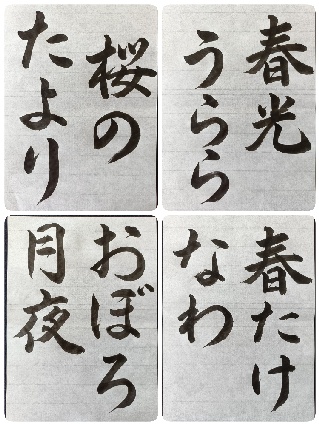 春光
うらら
桜の
たより
春たけ
なわ
おぼろ
月夜